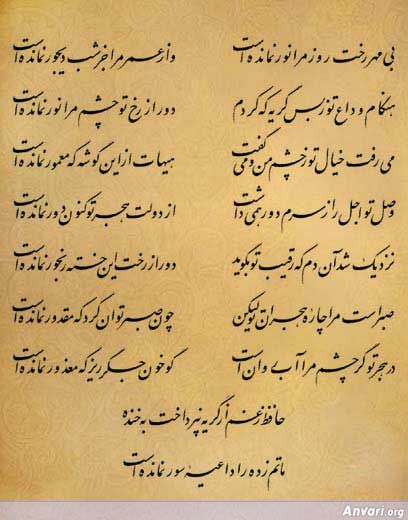 بی مهر رخت روز مرا نور نمانده است    واز عمر مرا جز شب دیجور نمانده است
هنگام وداع تو ز بس گریه که کردم    دور از رخ تو چشم مرا نور نمانده است
می رفت خیال تو ز چشم من و می گفت    هیهات از این گوشه که معمور نمانده است
وصل تو اجل را ز سرم دور همی داشت    از دولت هجر تو کنون دور نمانده است
نزدیک شد آن دم که رقیب تو بگوید    دور از رخت این خسته رنجور نمانده است
صبر است مرا چارهٔ هجران تو لیکن    چون صبر توان کرد که مقدور نمانده است
در هجر تو گر چشم مرا آب روان است    گو خون جگر ریز که معذور نمانده است
حافظ ز غم از گریه نپرداخت به خنده
ماتم زده را داعیهٔ سور نمانده است
Anvari.org